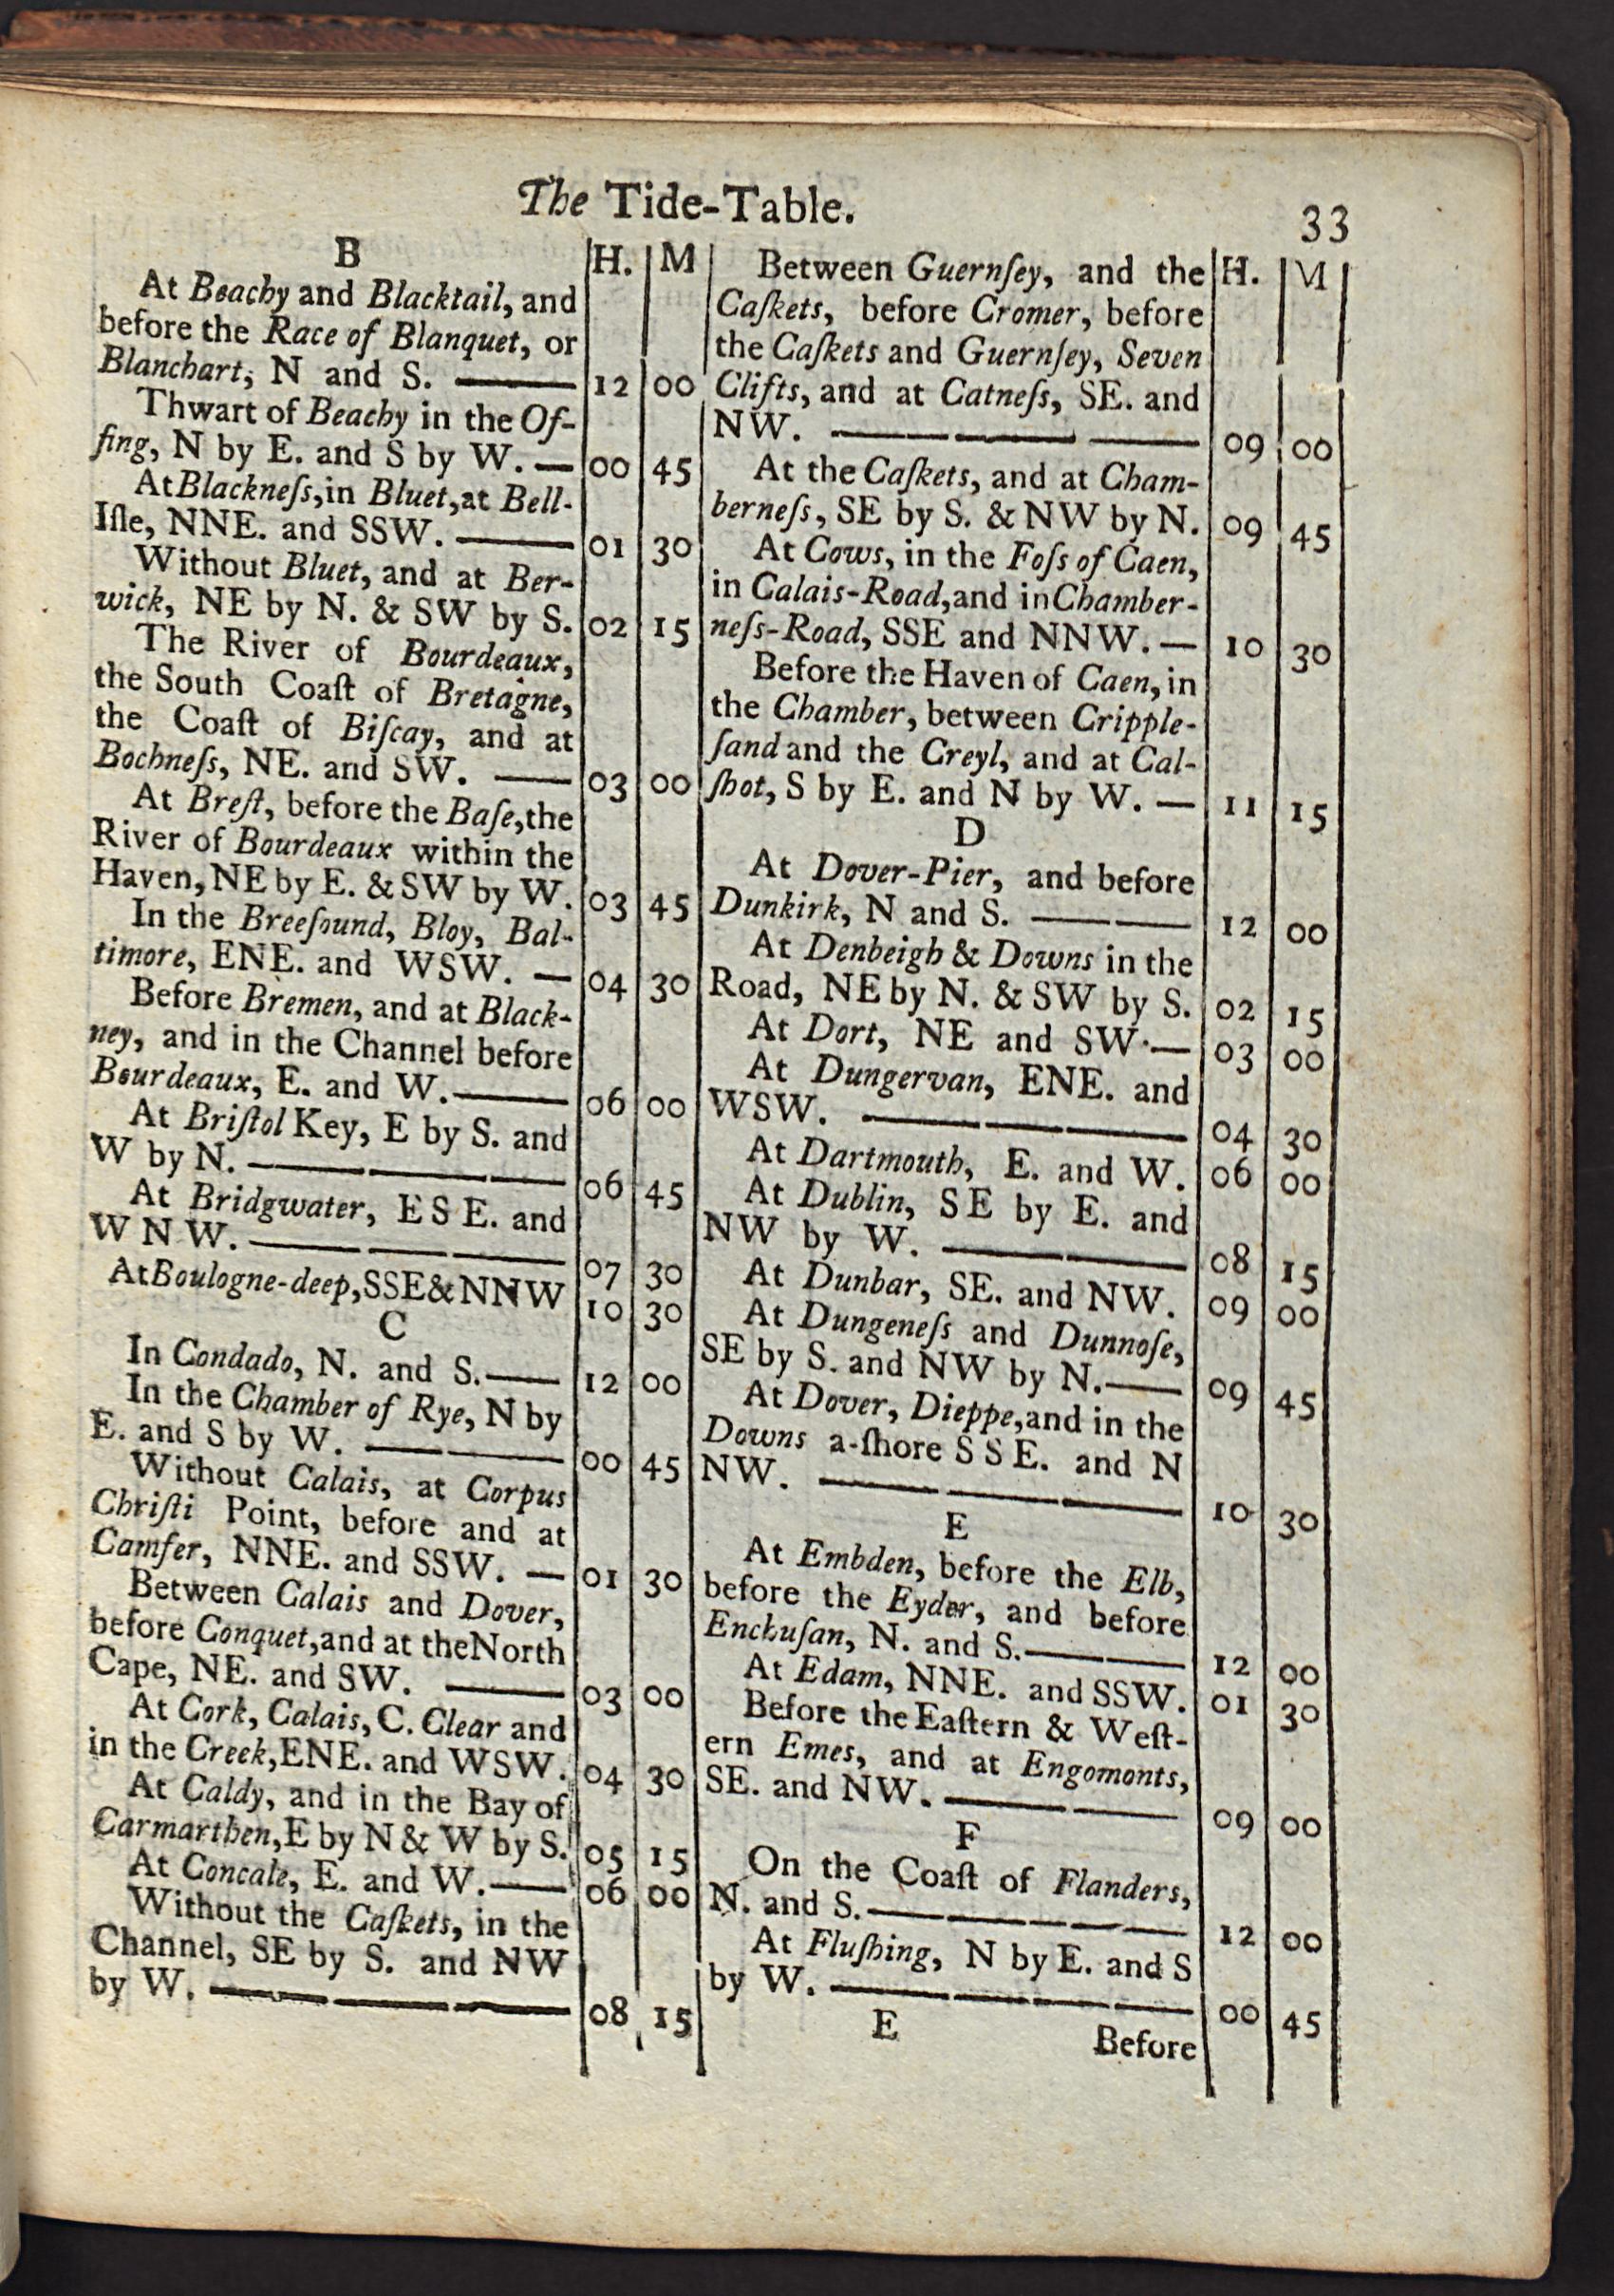 The Tide-Table.
33
B
H. M
At Beachy and Blacktail, and
before the Race of Blanquet, or
Blanchart, N and S. ——— 12 00
Thwart of Beachy in the Of-
fing, N by E. and S by W. — 00 45
At Blackneſs, in Bluet, at Bell-
Iſle, NNE. and SSW. ——— 01 30
Without Bluet, and at Ber-
wick, NE by N. & SW by S. 02 15
The River of Bourdeaux,
the South Coaſt of Bretagne,
the Coaſt of Biſcay, and at
Bochneſs, NE. and SW. —— 03 00
At Breſt, before the Baſe, the
River of Bourdeaux within the
Haven, NE by E. & SW by W. 03 45
In the Breeſound, Bloy, Bal-
timore, ENE. and WSW. — 04 30
Before Bremen, and at Black-
ney, and in the Channel before
Bourdeaux, E. and W. ——— 06 00
At Briſtol Key, E by S. and
W by N. ——— 06 45
At Bridgwater, ESE. and
WNW. ——— 07 30
At Boulogne-deep, SSE & NNW 10 30
C
In Condado, N. and S. —— 12 00
In the Chamber of Rye, N by
E. and S by W. ——— 00 45
Without Calais, at Corpus
Chriſti Point, before and at
Camfer, NNE. and SSW. — 01 30
Between Calais and Dover,
before Conquet, and at the North
Cape, NE. and SW. ——— 03 00
At Cork, Calais, C. Clear and
in the Creek, ENE. and WSW. 04 30
At Caldy, and in the Bay of
Carmarthen, E by N & W by S. 05 15
At Concale, E. and W. —— 06 00
Without the Caſkets, in the
Channel, SE by S. and NW
by W. ——— 08 15
H. M
Between Guernſey, and the
Caſkets, before Cromer, before
the Caſkets and Guernſey, Seven
Clifts, and at Catneſs, SE. and
NW. ——— 09 00
At the Caſkets, and at Cham-
berneſs, SE by S. & NW by N. 09 45
At Cows, in the Foſs of Caen,
in Calais-Road, and in Chamber-
neſs-Road, SSE and NNW. — 10 30
Before the Haven of Caen, in
the Chamber, between Cripple-
ſand and the Creyl, and at Cal-
ſhot, S by E. and N by W. — 11 15
D
At Dover-Pier, and before
Dunkirk, N and S. ——— 12 00
At Denbeigh & Downs in the
Road, NE by N. & SW by S. 02 15
At Dort, NE and SW. — 03 00
At Dungervan, ENE. and
WSW. ——— 04 30
At Dartmouth, E. and W. 06 00
At Dublin, SE by E. and
NW by W. ——— 08 15
At Dunbar, SE. and NW. 09 00
At Dungeneſs and Dunnoſe,
SE by S. and NW by N. —— 09 45
At Dover, Dieppe, and in the
Downs a-ſhore SSE. and N
NW. ——— 10 30
E
At Embden, before the Elb,
before the Eyder, and before
Enchuſan, N. and S. ——— 12 00
At Edam, NNE. and SSW. 01 30
Before the Eaſtern & Weſt-
ern Emes, and at Engomonts,
SE. and NW. ——— 09 00
F
On the Coaſt of Flanders,
N. and S. ——— 12 00
At Fluſhing, N by E. and S
by W. ——— 00 45
E Before